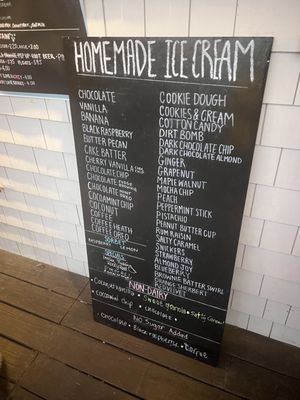 HOMEMADE ICE CREAM
CHOCOLATE
VANILLA
BANANA
BLACK RASPBERRY
BUTTER PECAN
CAKE BATTER
CHERRY VANILLA
CHOCOLATE CHIP
CHOCOLATE
CHOCOLATE
COCONUT CHIP
COCONUT
COFFEE
COFFEE HEATH
COFFEE OREO
SORBET
RASPBERRY LEMON
SPECIALS
COOKIE DOUGH
COOKIES & CREAM
COTTON CANDY
DIRT BOMB
DARK CHOCOLATE CHIP
DARK CHOCOLATE ALMOND
GINGER
GRAPENUT
MAPLE WALNUT
MOCHA CHIP
PEACH
PEPPERMINT STICK
PISTACHIO
PEANUT BUTTER CUP
RUM RAISIN
SALTY CARAMEL
SNICKERS
STRAWBERRY
ALMOND JOY
BLUEBERRY
BROWNIE BATTER SWIRL
ORANGE SHERBERT
RED VELVET
NON-DAIRY
• Coconut Vanilla • Sweet • Salty Caramel
• Coconut Chip • Chocolate •
No Sugar Added
• Chocolate • Black Raspberry • Coffee